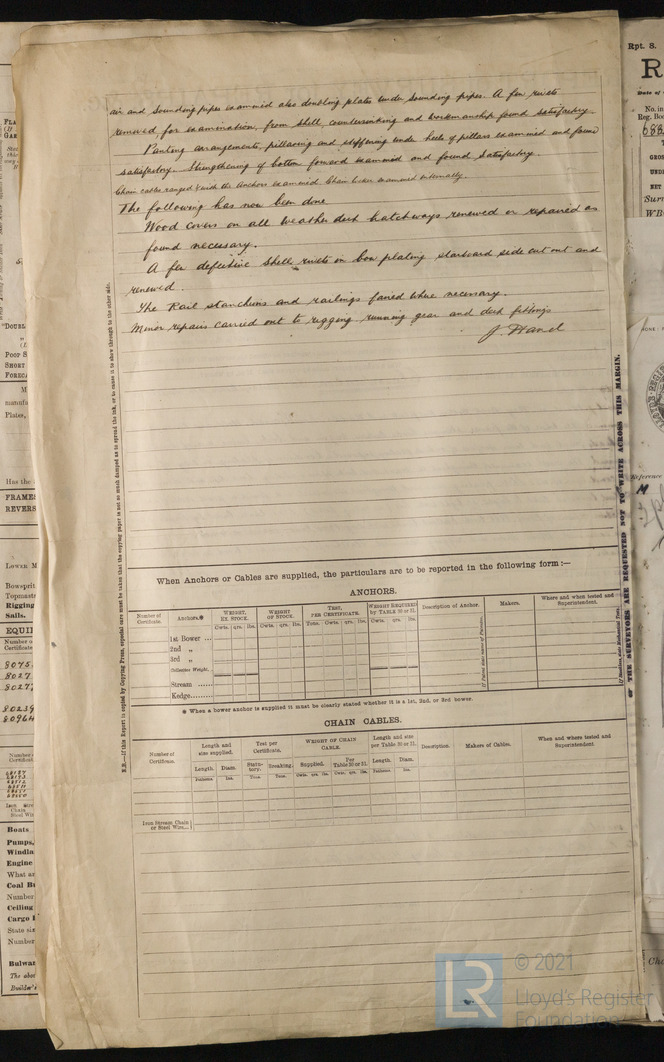 air and sounding pipes examined also doubling plates under sounding pipes. A few rivets
removed for examination from shell, countersinking and workmanship found satisfactory.
Panting arrangements, pillaring and stiffening under heels of pillars examined and found
satisfactory. Strengthening of bottom forward examined and found satisfactory.
Chain cables ranged & with the Anchors examined. Chain locker examined internally.
The following has now been done
Wood covers on all weather deck hatchways renewed or repaired as
found necessary.
A few defective shell rivets on bow plating starboard side cut out and
renewed.
The Rail stanchions and railings faired where necessary.
Minor repairs carried out to rigging running gear and deck fittings
J. Hand
When Anchors or Cables are supplied, the particulars are to be reported in the following form :—
ANCHORS.
Number of Certificate.
Anchors.*
WEIGHT, EX. STOCK.
WEIGHT OF STOCK.
TEST, PER CERTIFICATE.
WEIGHT REQUIRED by TABLE 30 or 31.
Description of Anchor.
Makers.
Where and when tested and Superintendent.
Cwts. qrs. lbs.
Cwts. qrs. lbs.
Tons. Cwts. qrs. lbs.
Cwts. qrs. lbs.
1st Bower ...
2nd „
3rd „
Collective Weight.
Stream ......
Kedge.........
* When a bower anchor is supplied it must be clearly stated whether it is a 1st, 2nd, or 3rd bower.
CHAIN CABLES.
Number of Certificate.
Length and size supplied.
Test per Certificate.
WEIGHT OF CHAIN CABLE.
Length and size per Table 30 or 31.
Description.
Makers of Cables.
When and where tested and Superintendent.
Length.
Diam.
Statutory.
Breaking.
Supplied.
Per Table 30 or 31.
Length.
Diam.
Fathoms.
Ins.
Tons.
Tons.
Cwts. qrs. lbs.
Cwts. qrs. lbs.
Fathoms.
Ins.
Iron Stream Chain or Steel Wire...
N.B.—If this Report is copied by Copying Press, especial care must be taken that the copying paper is not so much damped as to spread the ink, or to cause it to show through to the other side.
THE SURVEYORS ARE REQUESTED NOT TO WRITE ACROSS THIS MARGIN.
Rpt. 8.
R
No. in
Reg. Boo
GROS
UNDE
NET
"DOUBL
POOP S
SHORT
FOREC
manufa
Plates,
Has the
FRAMES
REVERS
LOWER M
Bowsprit
Topmasts
Rigging
Sails.
EQUIP
Number o
Certificate
8075
8027
80239
80964
Boats
Pumps,
Windla
Engine
What ar
Coal Bu
Number
Ceiling
Cargo P
State siz
Number
Bulwar
The abov
Builder's
Reference
LR
© 2021
Lloyd's Register
Foundation